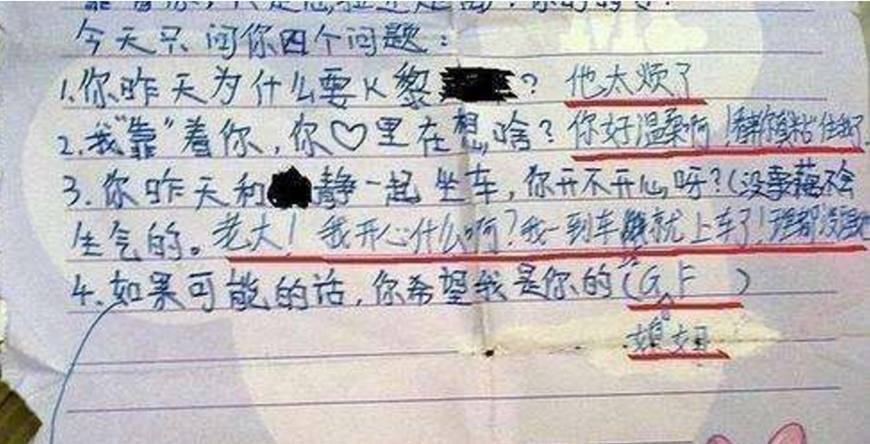 今天只问你四个问题：
1.你昨天为什么要K黎？他太烦了
2.我"靠"着你，你♡里在想啥？你好温柔啊！
3.你昨天和静一起坐车，你开不开心呀？(没事 不会
生气的。老大！我开心什么啊？我一到车 就上车了！理都没理她
4.如果可能的话，你希望我是你的(G.F )